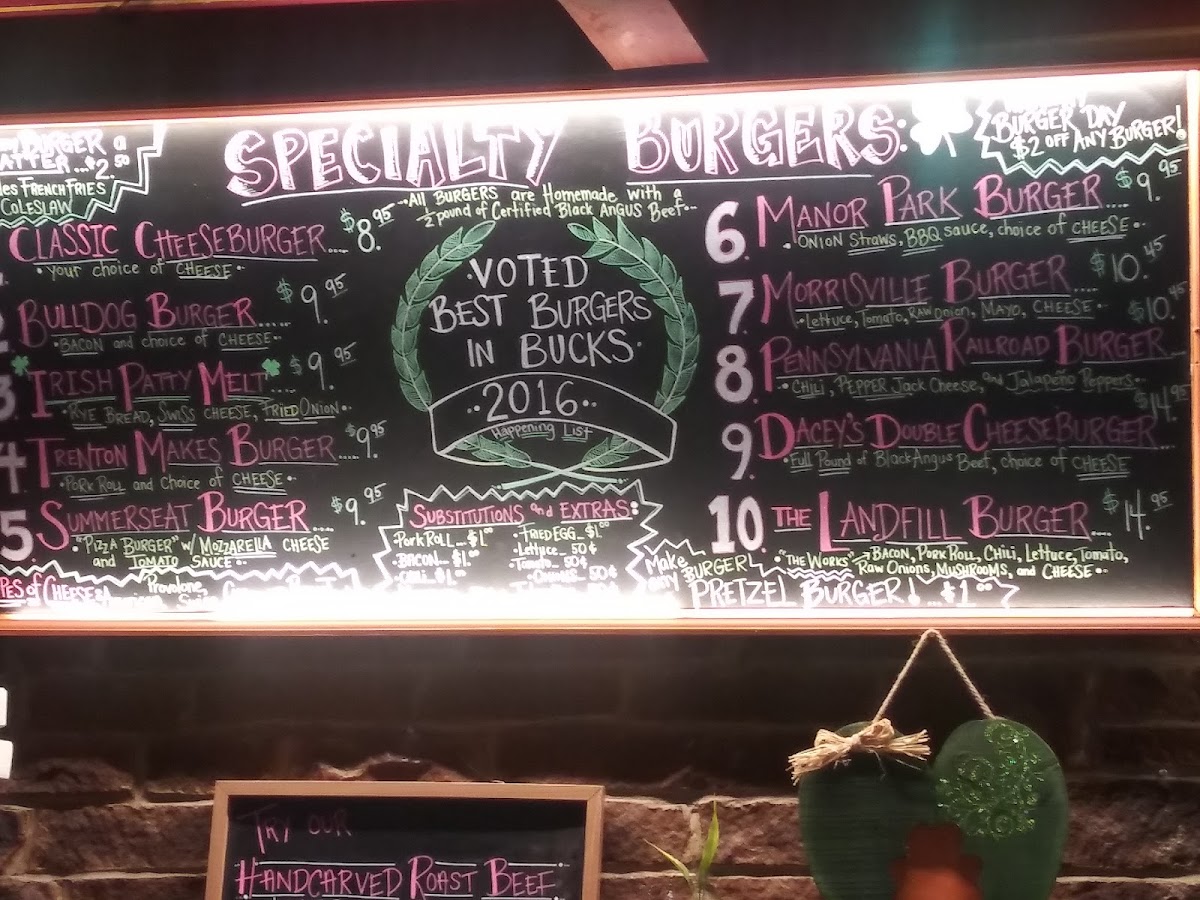 BURGER a
$2.50
FRENCH FRIES
COLESLAW
SPECIALTY BURGERS:
All BURGERS are Homemade with a
1/2 pound of Certified Black Angus Beef
BURGER DAY
$2 OFF ANY BURGER!
CLASSIC CHEESEBURGER.... $8.95
your choice of CHEESE
BULLDOG BURGER..... $9.95
BACON and choice of CHEESE
3 IRISH PATTY MELT $9.95
RYE BREAD, SWISS CHEESE, FRIED ONION
4 TRENTON MAKES BURGER $9.95
PORK ROLL and choice of CHEESE
5 SUMMERSEAT BURGER.... $9.95
"PIZZA BURGER" w/ MOZZARELLA CHEESE
and TOMATO SAUCE
OF CHEESE
Provolone,
VOTED
BEST BURGERS
IN BUCKS
2016
Happening List
SUBSTITUTIONS and EXTRAS:
Pork Roll... $1.00
BACON... $1.00
CHILI... $1.00
FRIED EGG... $1.00
Lettuce... 50¢
Tomato... 50¢
Onions... 50¢
6 MANOR PARK BURGER.... $9.95
ONION STRAWS, BBQ sauce, choice of CHEESE
7 MORRISVILLE BURGER.... $10.45
Lettuce, Tomato, RAW onion, MAYO, CHEESE
8 PENNSYLVANIA RAILROAD BURGER... $10.45
CHILI, PEPPER Jack Cheese, and Jalapeño Peppers
9 DACEY'S DOUBLE CHEESEBURGER... $14.95
Full Pound of Black Angus Beef, choice of CHEESE
10 THE LANDFILL BURGER.... $14.95
"THE WORKS" BACON, PORK ROLL, CHILI, LETTUCE, TOMATO,
Raw Onions, MUSHROOMS, and CHEESE
Make any BURGER
PRETZEL BURGER! ...$1.00
TRY OUR
HANDCARVED ROAST BEEF